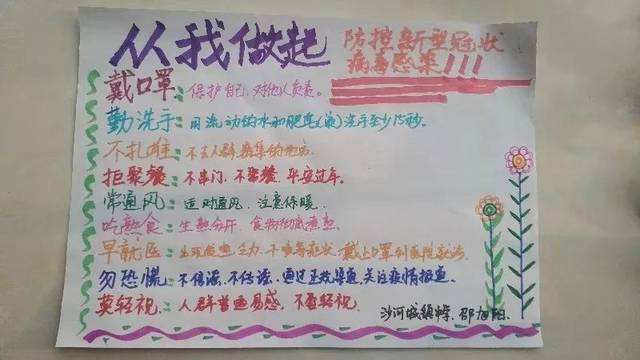 从我做起
防控新型冠状
病毒感染!!!
戴口罩:保护自己,对他人负责。
勤洗手:用流动的水和肥皂(液)洗手至少15秒。
不扎堆:不去人群密集的地方。
拒聚餐:不串门,不聚餐,平安过年。
常通风:适时通风,注意保暖。
吃熟食:生熟分开,食物彻底煮熟。
早就医:出现发热、乏力、干咳等症状,戴上口罩到医院就诊。
勿恐慌:不信谣,不传谣,通过正规渠道,关注疫情报道。
莫轻视:人群普遍易感,不要轻视。
沙河城镇中学 邵旭阳